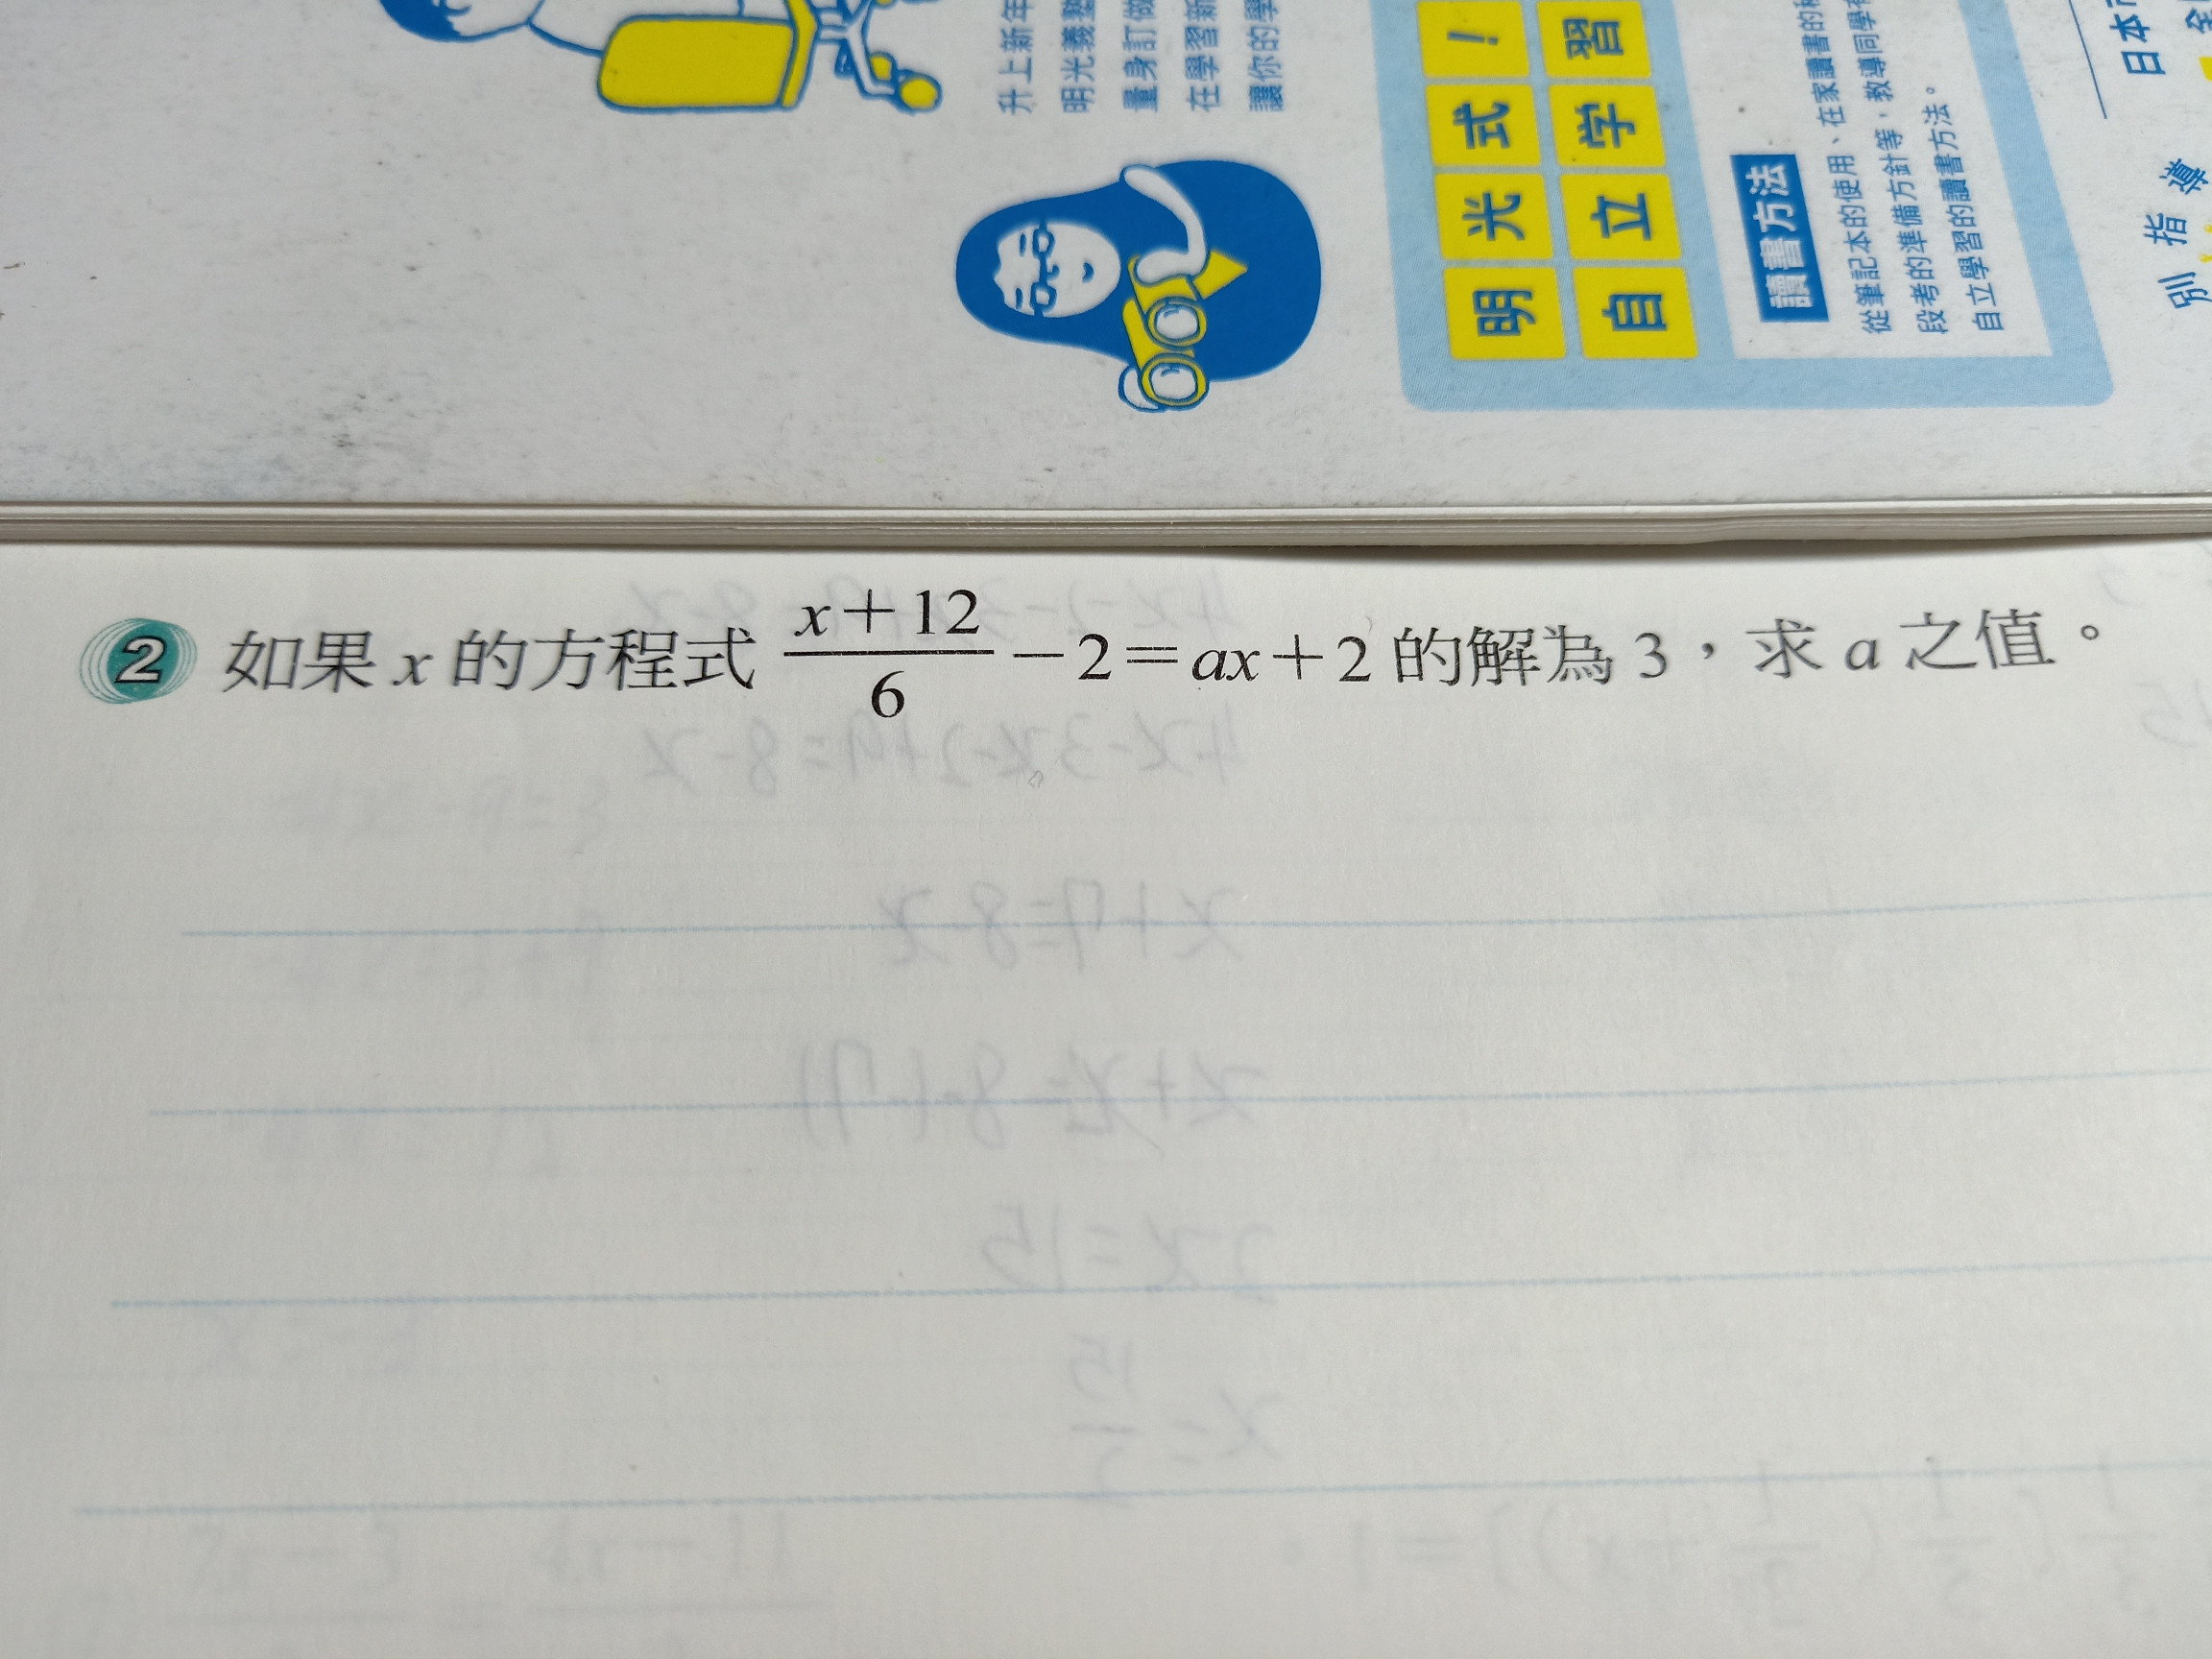 升上新年
明光義塾
量身訂做
在學習新
讓你的學
明光式！
自立学習
讀書方法
從筆記本的使用、在家讀書的
段考的準備方針等，教導同學有
自立學習的讀書方法。
日本
別指導
2 如果 x 的方程式 \frac{x+12}{6}-2=ax+2 的解為 3，求 a 之值。